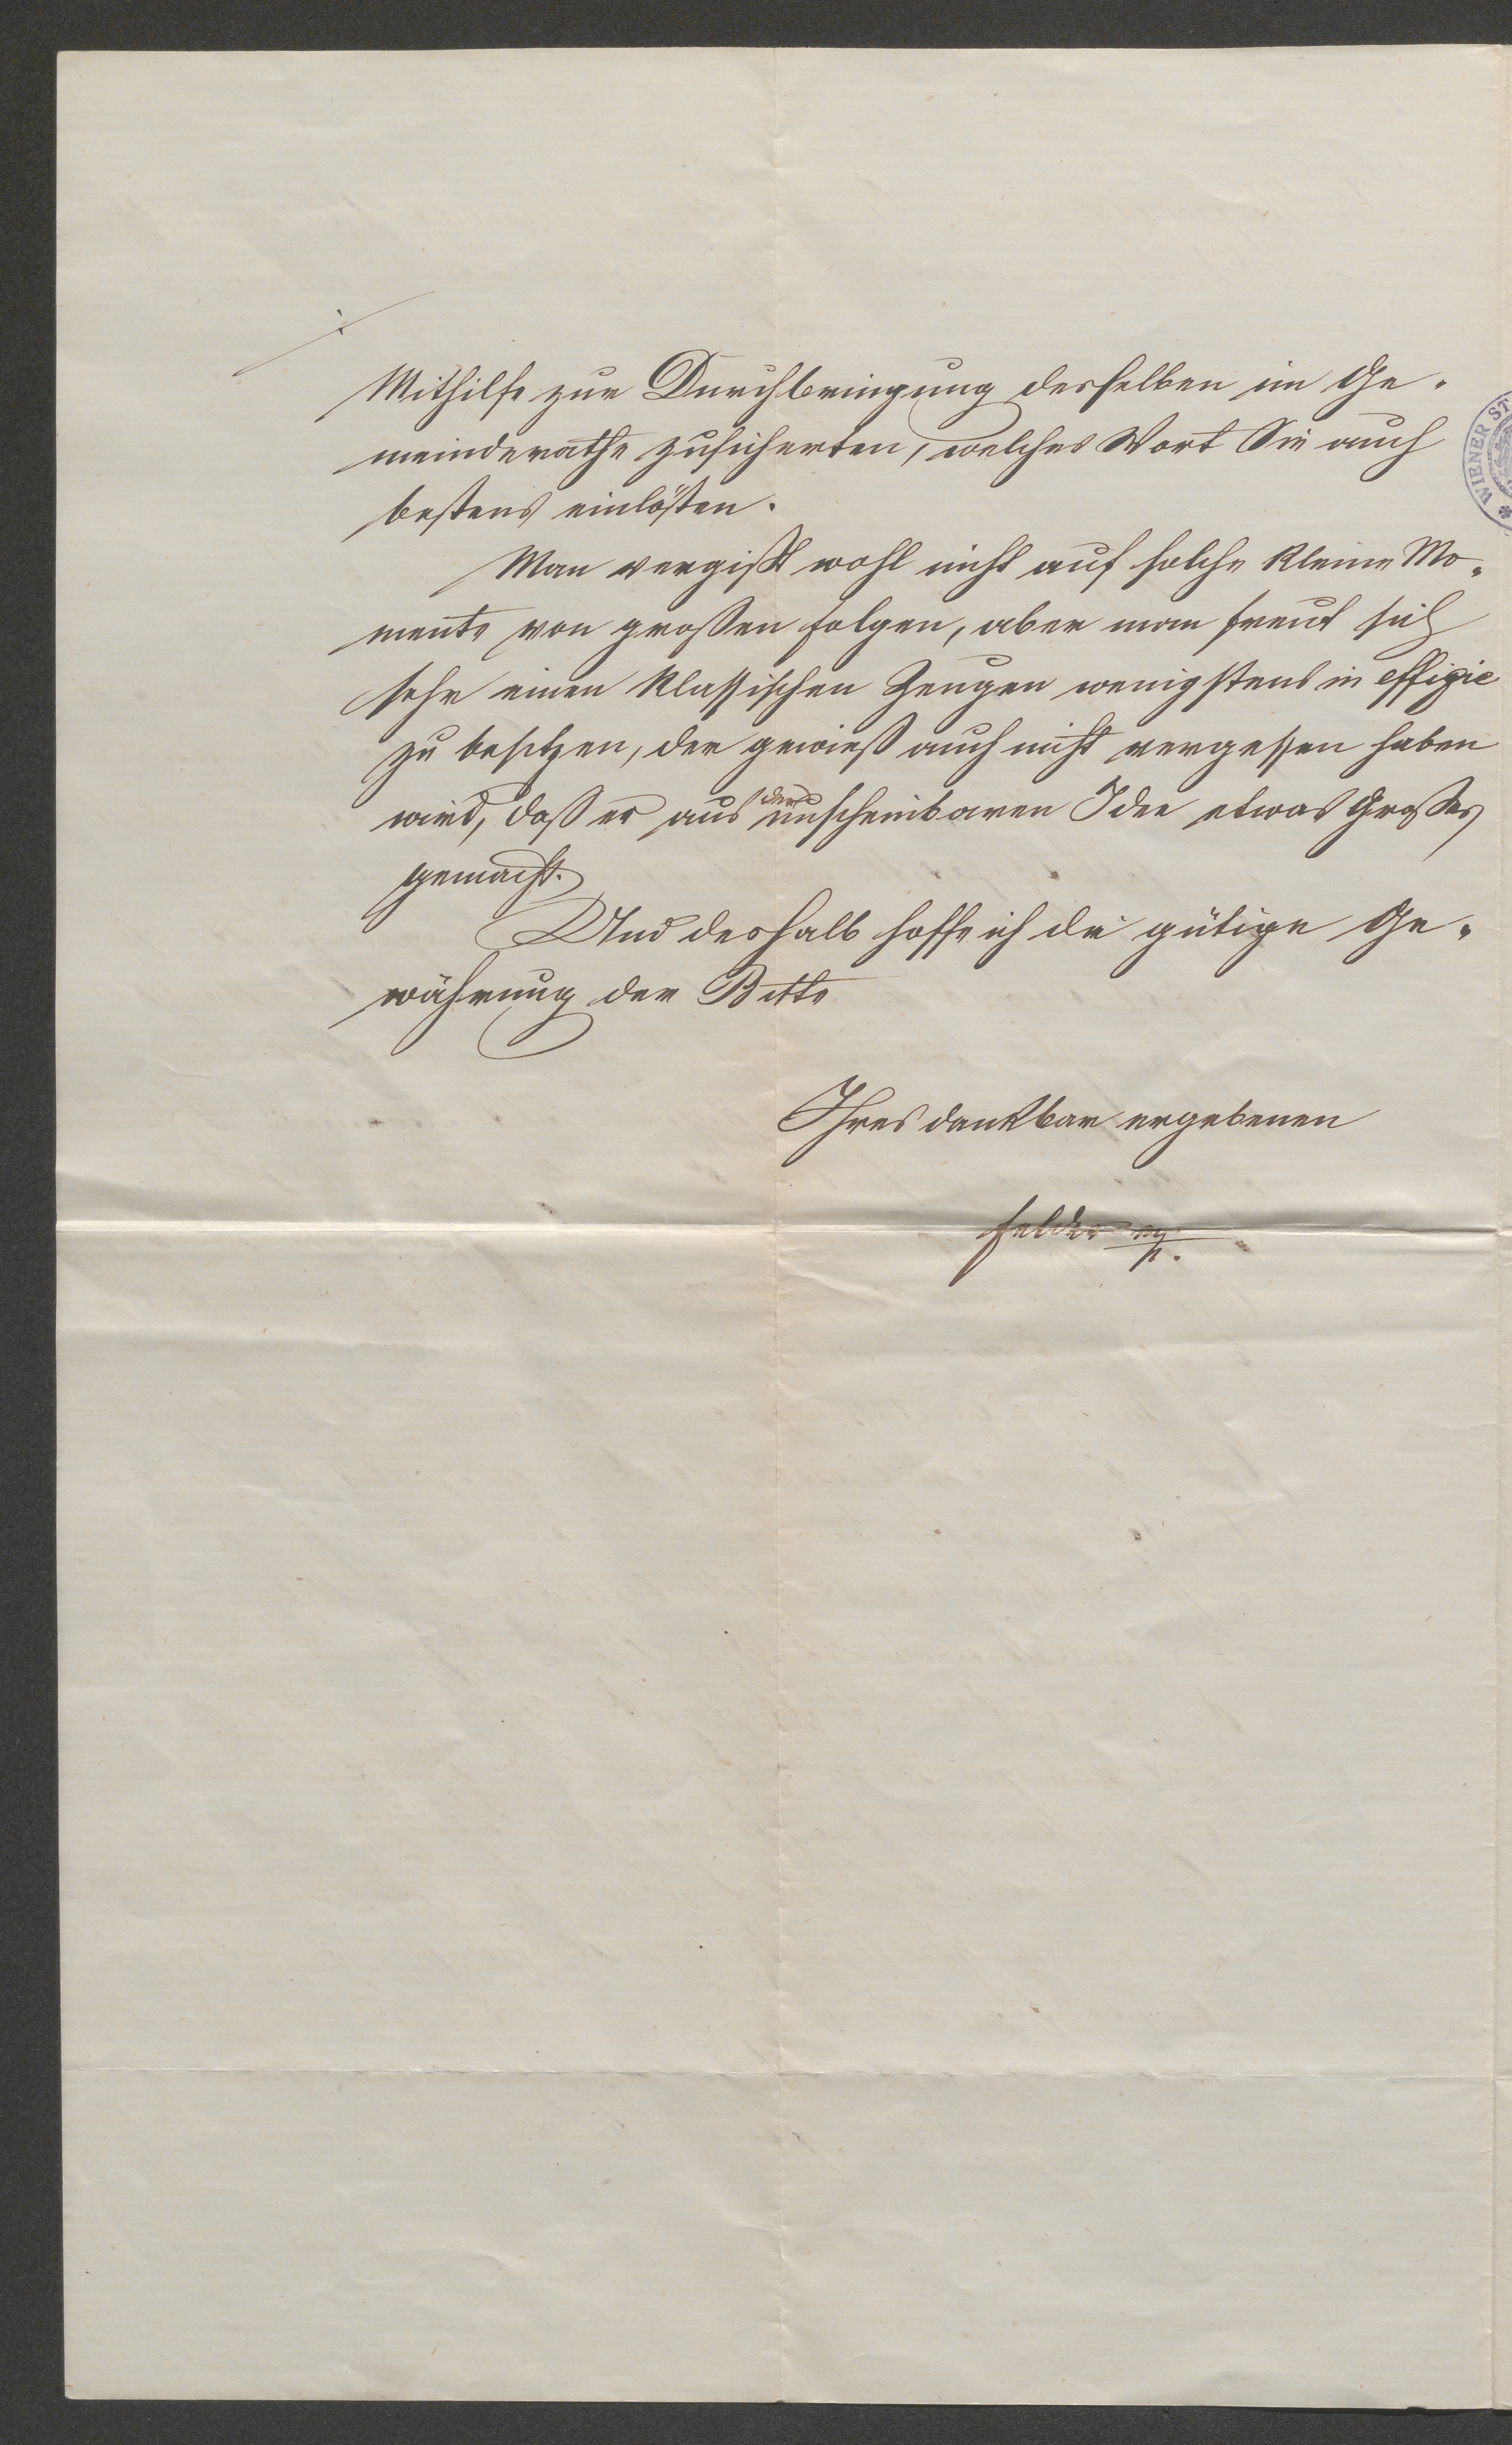 Mithilfe zur Durchbringung desselben im Ge-
meinderathe zusicherten, welches Wort Sie auch
bestens einlösten.
Man vergißt wohl nicht auf solche kleine Mo-
mente von großen Folgen, aber man freut sich
sehr einen klassischen Zeugen wenigstens in effigie
zu besitzen, der gewiß auch nicht vergessen haben
wird, daß er aus der unscheinbaren Idee etwas Großes
gemacht.
Und deshalb hoffe ich die gütige Ge-
währung der Bitte
Ihres dankbar ergebenen
Felder m/p.
WIENER ST